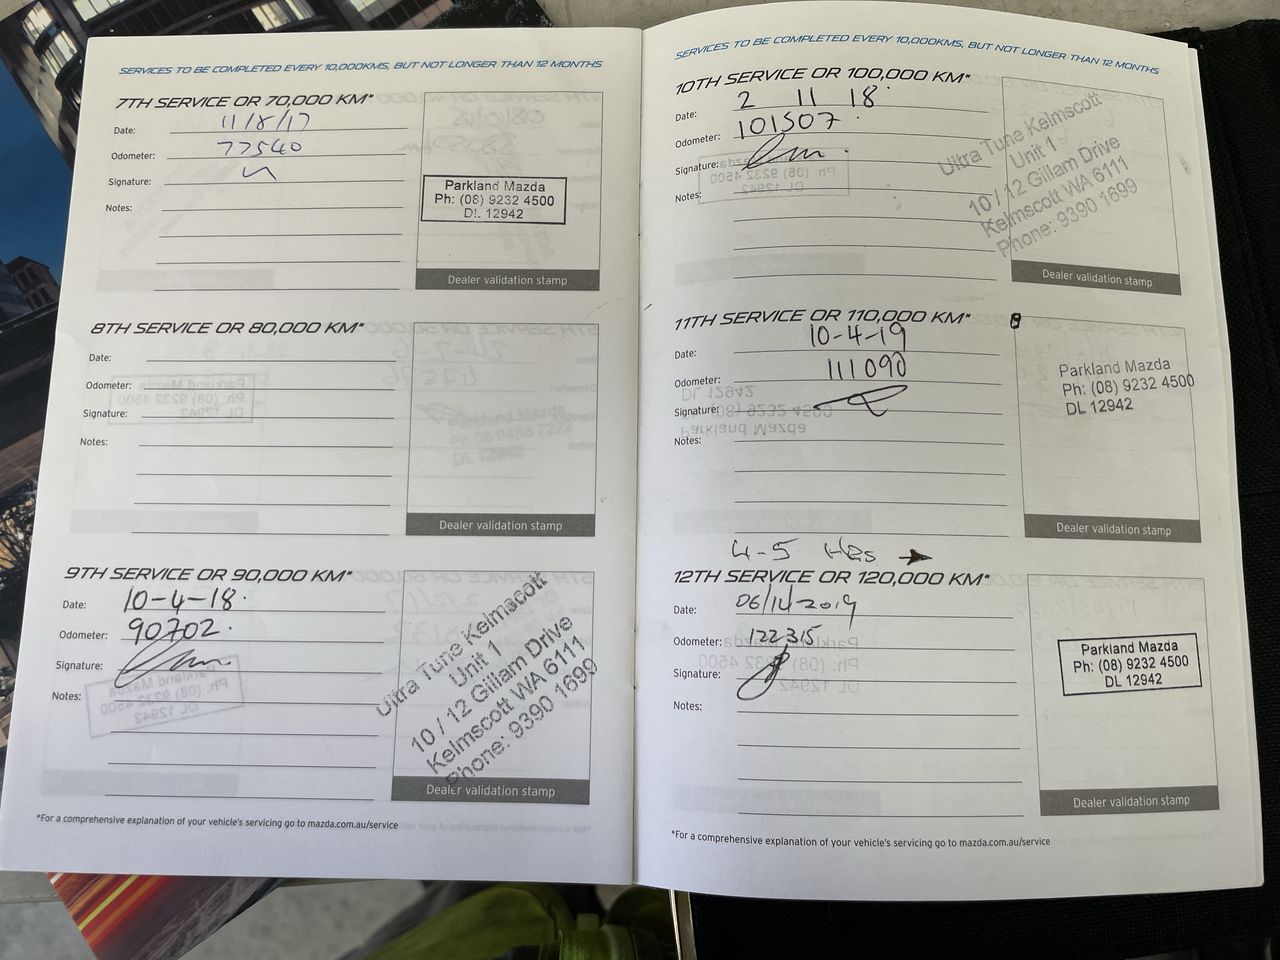 SERVICES TO BE COMPLETED EVERY 10,000KMS, BUT NOT LONGER THAN 12 MONTHS
7TH SERVICE OR 70,000 KM*
Date: 11/8/17
Odometer: 77540
Signature:
Notes:
Parkland Mazda
Ph: (08) 9232 4500
DL 12942
Dealer validation stamp
8TH SERVICE OR 80,000 KM*
Date:
Odometer:
Signature:
Notes:
Dealer validation stamp
9TH SERVICE OR 90,000 KM*
Date: 10-4-18.
Odometer: 90702.
Signature:
Notes:
Ultra Tune Kelmscott
Unit 1
10 / 12 Gillam Drive
Kelmscott WA 6111
Phone: 9390 1699
Dealer validation stamp
*For a comprehensive explanation of your vehicle's servicing go to mazda.com.au/service
SERVICES TO BE COMPLETED EVERY 10,000KMS, BUT NOT LONGER THAN 12 MONTHS
10TH SERVICE OR 100,000 KM*
Date: 2 11 18
Odometer: 101507
Signature:
Notes:
Ultra Tune Kelmscott
Unit 1
10 / 12 Gillam Drive
Kelmscott WA 6111
Phone: 9390 1699
Dealer validation stamp
11TH SERVICE OR 110,000 KM*
Date: 10-4-19
Odometer: 111090
Signature:
Notes:
Parkland Mazda
Ph: (08) 9232 4500
DL 12942
Dealer validation stamp
4-5 HRS
12TH SERVICE OR 120,000 KM*
Date: 06/11/2019
Odometer: 122315
Signature:
Notes:
Parkland Mazda
Ph: (08) 9232 4500
DL 12942
Dealer validation stamp
*For a comprehensive explanation of your vehicle's servicing go to mazda.com.au/service